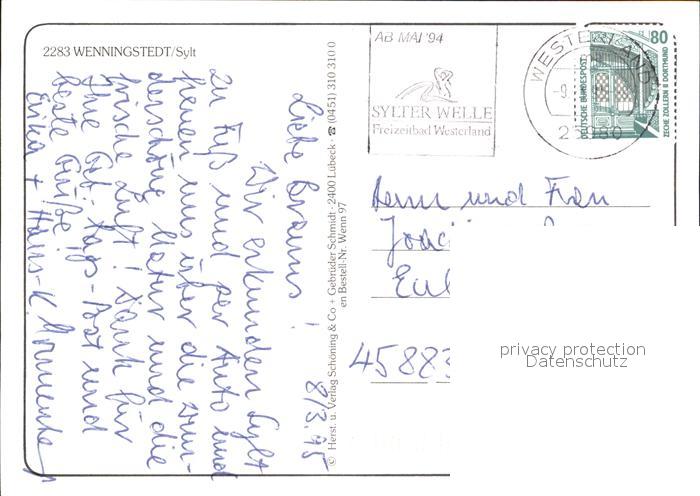 2283 WENNINGSTEDT/Sylt
8/3.95
Liebe Brauns!
Wir erkunden Sylt
zu Fuß und per Auto und
freuen uns über die wun-
derschöne Natur und die
frische Luft! Dank für
Ihre Geb. tags-Post und
beste Grüße
Erika + Hans-K.
© Herst. u. Verlag Schöning & Co + Gebrüder Schmidt · 2400 Lübeck · ☎ (0451) 310 310 0
en Bestell-Nr. Wenn 97
AB MAI '94
SYLTER WELLE
Freizeitbad Westerland
WESTERLAND
-9.
25980
80
DEUTSCHE BUNDESPOST
ZECHE ZOLLERN II DORTMUND
Herrn und Frau
Joac
Eul
45883
privacy protection
Datenschutz